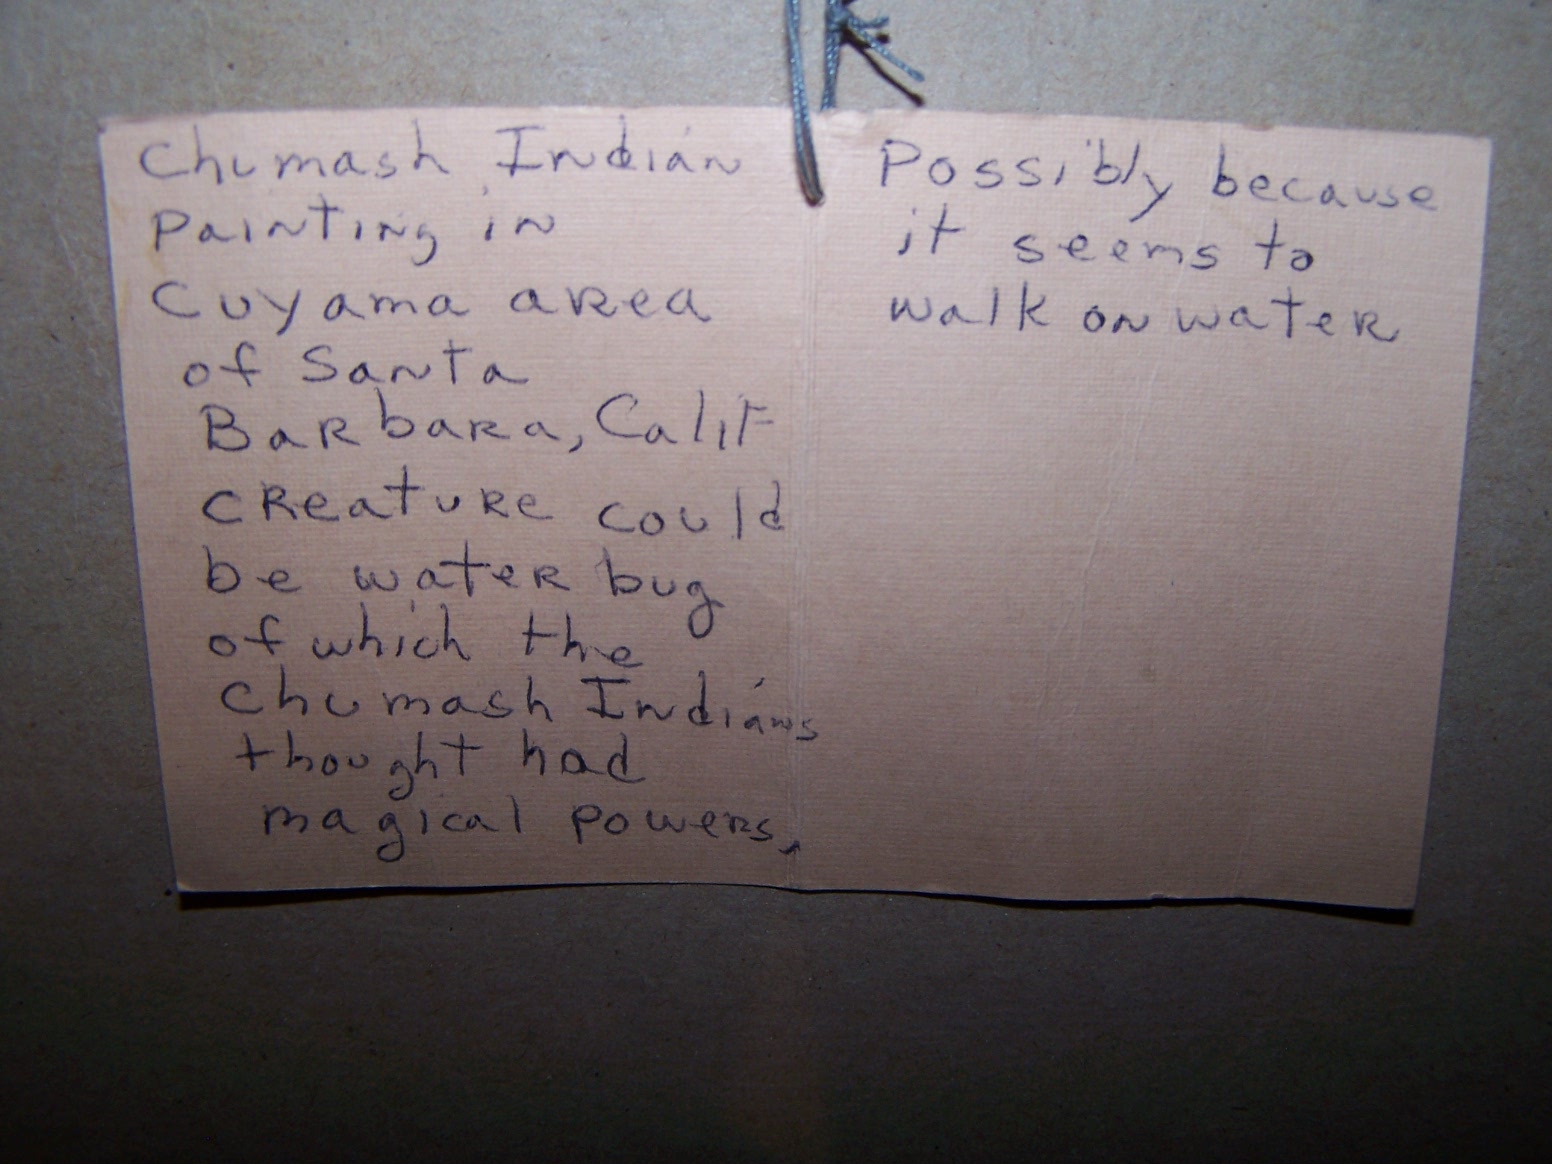 Chumash Indian
Painting in
Cuyama area
of Santa
Barbara, Calif
creature could
be water bug
of which the
Chumash Indians
thought had
magical powers.
Possibly because
it seems to
walk on water